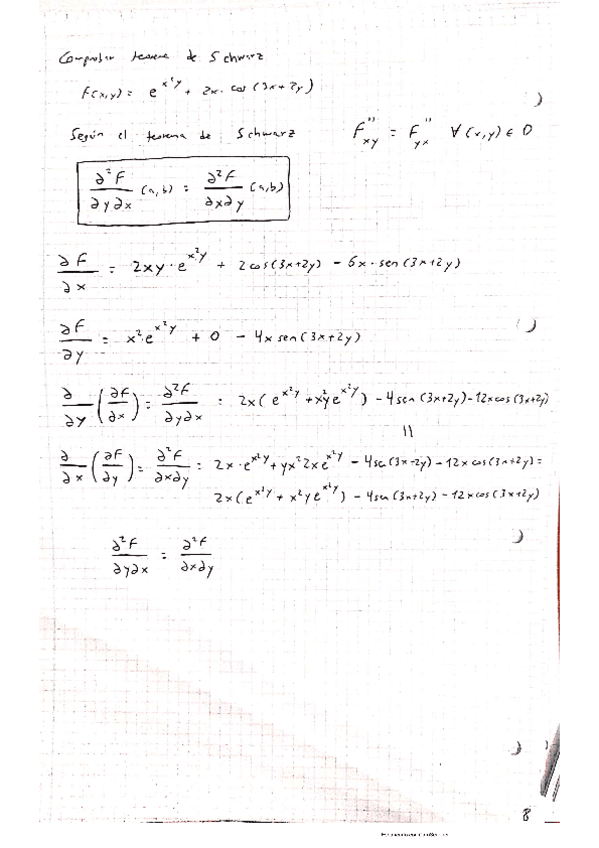 Comprobar teorema de Schwarz
F(x,y) = e^{x²y} + 2x · cos(3x+2y)
Según el teorema de Schwarz F''_{xy} = F''_{yx} ∀(x,y) ∈ D
∂²F/∂y∂x (a,b) = ∂²F/∂x∂y (a,b)
∂F/∂x = 2xy · e^{x²y} + 2cos(3x+2y) - 6x · sen(3x+2y)
∂F/∂y = x² · e^{x²y} + 0 - 4x sen(3x+2y)
∂/∂y (∂F/∂x) = ∂²F/∂y∂x = 2x(e^{x²y} + x²ye^{x²y}) - 4sen(3x+2y) - 12xcos(3x+2y)
=
∂/∂x (∂F/∂y) = ∂²F/∂x∂y = 2x · e^{x²y} + yx²2xe^{x²y} - 4sen(3x+2y) - 12xcos(3x+2y) =
2x(e^{x²y} + x²ye^{x²y}) - 4sen(3x+2y) - 12xcos(3x+2y)
∂²F/∂y∂x = ∂²F/∂x∂y
8